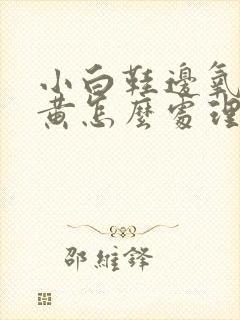 小白鞋邊氧
黃怎麼處理
邵維鋒